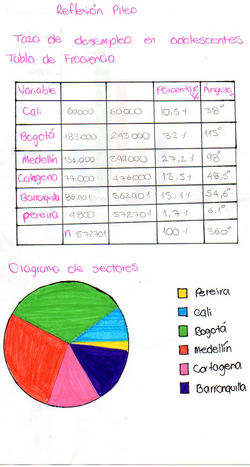 Reflexión Pileo
Taza de desempleo en adolescentes
Tabla de Frecuencia
Variable Porcentaje Angulo
Cali 60000 60000 10,5% 38°
Bogotá 183000 243000 32% 115°
Medellin 399000 27,2% 98°
Cartagena 77000 476000 13,5% 48,5°
Barranquilla 86.901 562901 15,1% 54,6°
pereira 9.800 572701 1,7% 6,1°
n 572701 100% 360°
Diagrama de sectores
Pereira
Cali
Bogotá
Medellín
Cartagena
Barranquilla